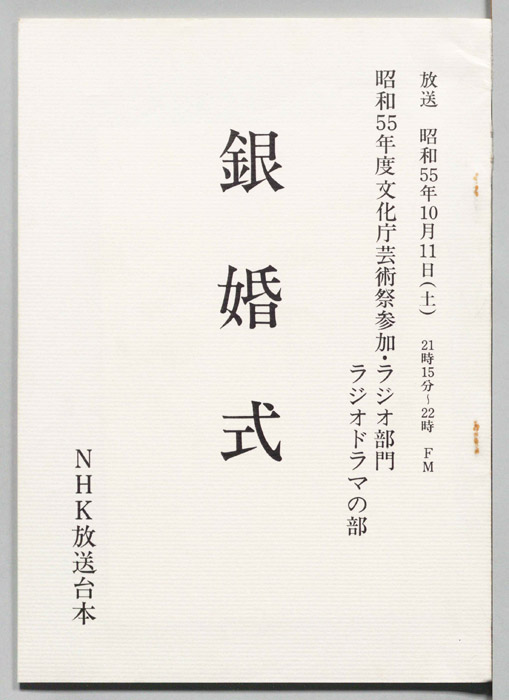 放送 昭和55年10月11日(土) 21時15分~22時 FM
昭和55年度文化庁芸術祭参加・ラジオ部門
ラジオドラマの部
銀婚式
NHK放送台本